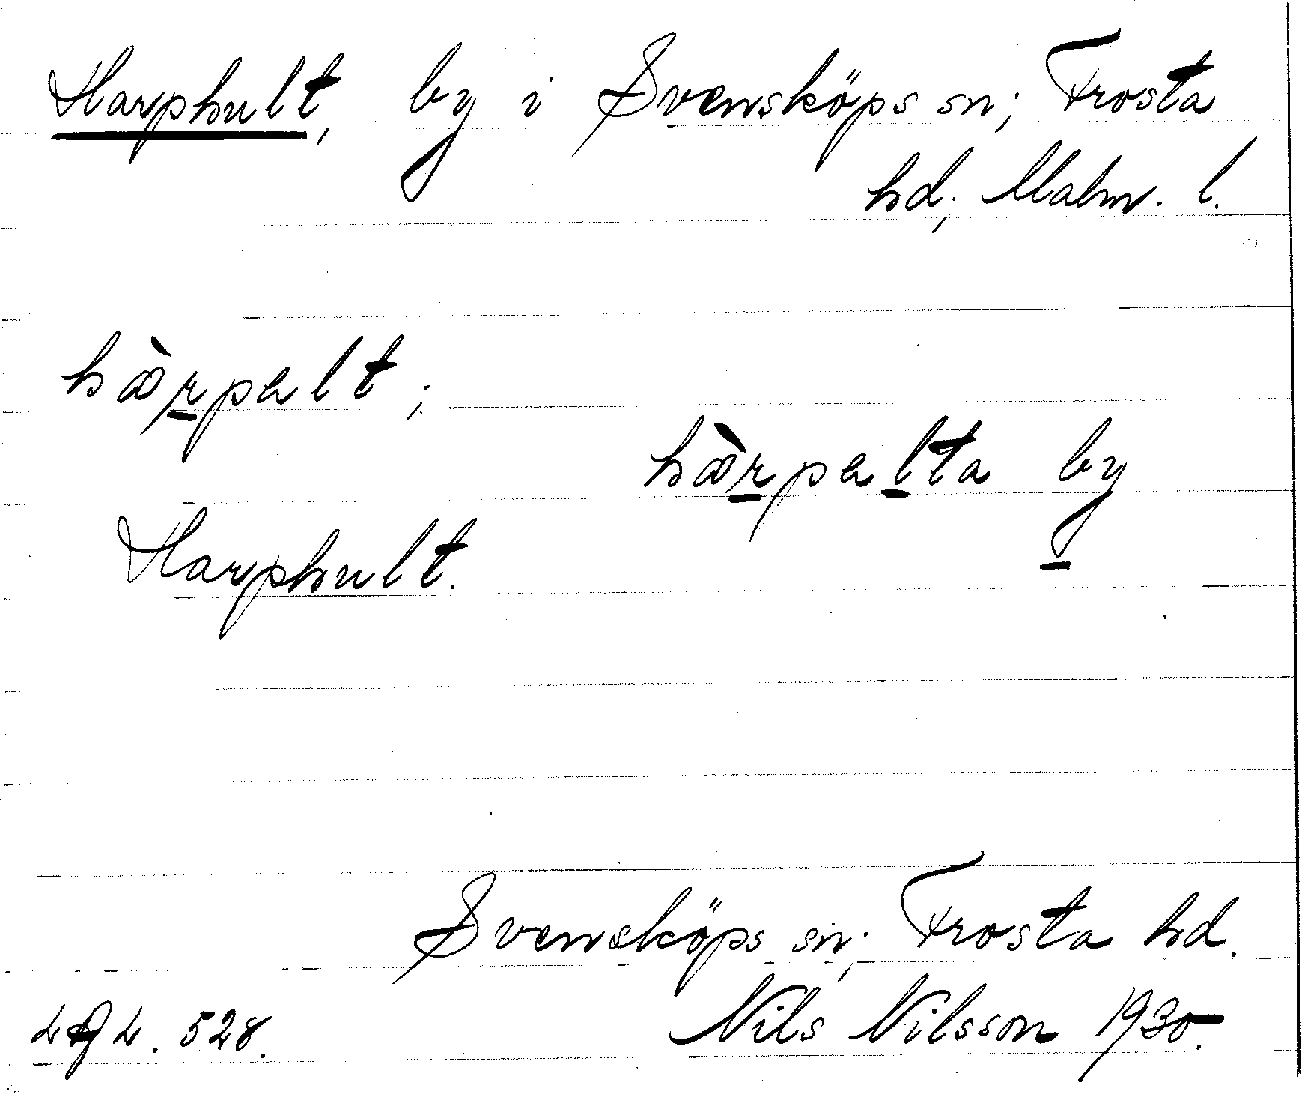 Harphult, by i Svensköps sn; Frosta
hd; Malm. l.
hæ̀rpalt;
hæ̀rpalta by
Harphult.
Svensköps sn; Frosta hd.
Nils Nilsson 1930.
528.